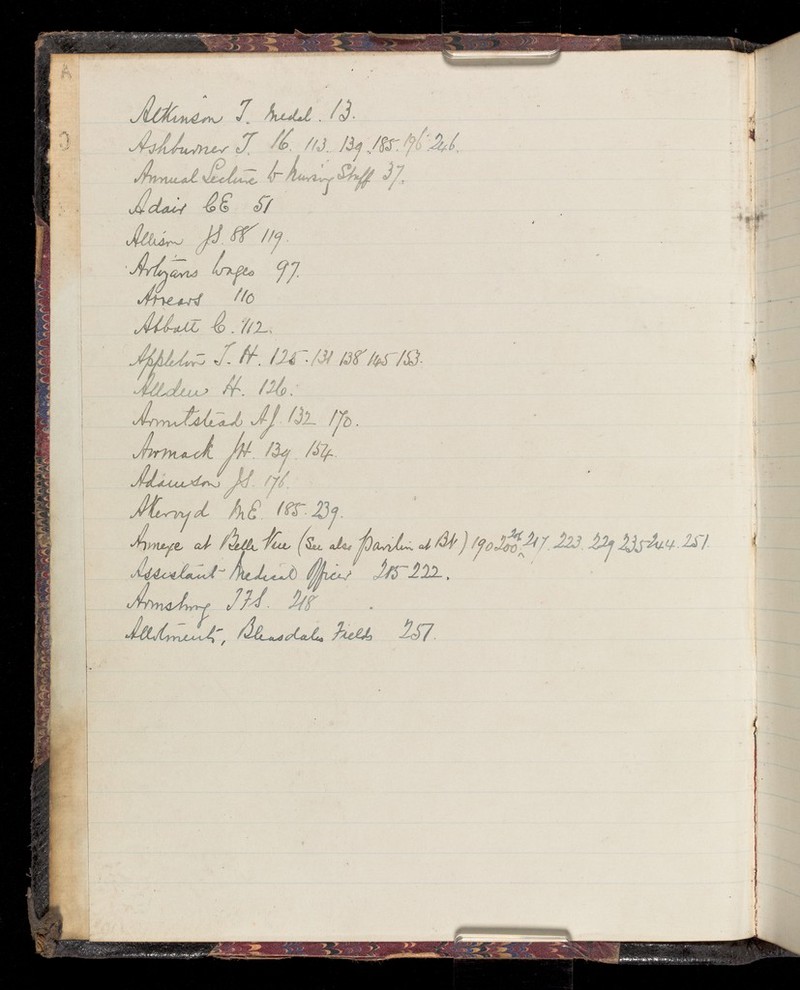 A
Atkinson T. Medal. 13.
Ashburner T. 16. 113. 139. 185. 196. 246.
Annual Lecture to Nursing Staff 37.
Adair CE 51
Allison JS. 88 119.
Artizans Wages 97.
Arrears 110
Abbott C. 112.
Appleton T. H. 125. 131 138 145 153.
Allden H. 126.
Armitstead AJ. 132 170.
Armack JH. 139. 154.
Adamson JS. 176.
Akeroyd M.E. 185. 239.
Annexe at Belle Vue (See also Pavilion at BV) 190 200 217. 223. 229 235 244. 251.
Assistant Medical Officer 215 222.
Armstrong TFS. 218
Allotments, Bleasdales Fields 251.